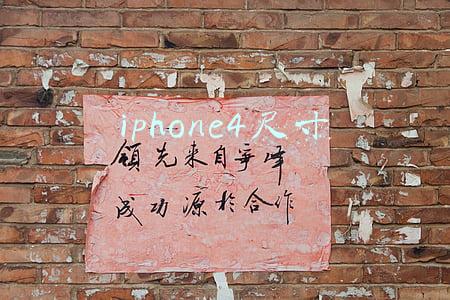 iphone4尺寸
領先来自争峰
成功源於合作